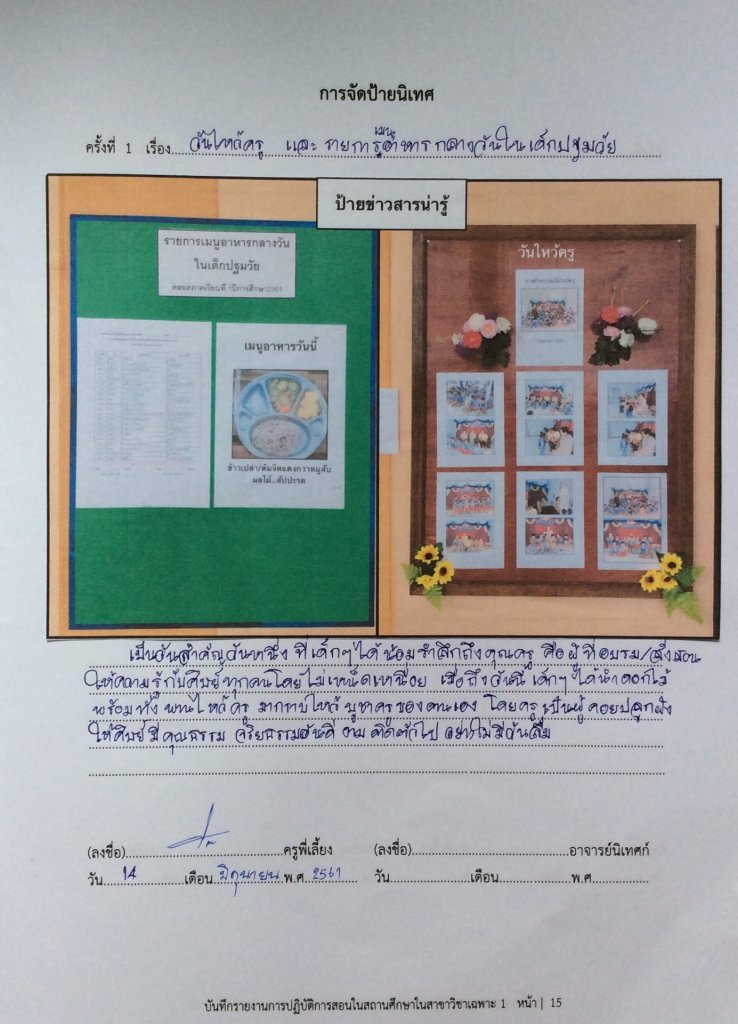 การจัดป้ายนิเทศ
ครั้งที่ 1 เรื่อง วันไหว้ครู และ รายการเมนูอาหารกลางวันในเด็กปฐมวัย
ป้ายข่าวสารน่ารู้
รายการเมนูอาหารกลางวัน
ในเด็กปฐมวัย
ตลอดภาคเรียนที่ 1ปีการศึกษา2561
เมนูอาหารวันนี้
ข้าวเปล่า/ต้มจืดแตงกวาหมูสับ
ผลไม้...สัปปะรด
วันไหว้ครู
เป็นวันสำคัญวันหนึ่ง ที่เด็กๆได้น้อมรำลึกถึงคุณครู คือผู้ที่อบรม/สั่งสอน
ให้ความรู้กับศิษย์ทุกคนโดยไม่เหน็ดเหนื่อย เมื่อถึงวันนี้ เด็กๆได้นำดอกไม้
พร้อมทั้งพานไหว้ครู มากราบไหว้ บูชาครูของตนเอง โดยครูเป็นผู้คอยปลูกฝัง
ให้ศิษย์มีคุณธรรม จริยธรรมอันดีงาม ติดตัวไป อย่างไม่มีวันลืม
(ลงชื่อ)..........ครูพี่เลี้ยง (ลงชื่อ)..........อาจารย์นิเทศก์
วัน 14 เดือน มิถุนายน พ.ศ. 2561 วัน..........เดือน..........พ.ศ..........
บันทึกรายงานการปฏิบัติการสอนในสถานศึกษาในสาขาวิชาเฉพาะ 1 หน้า | 15